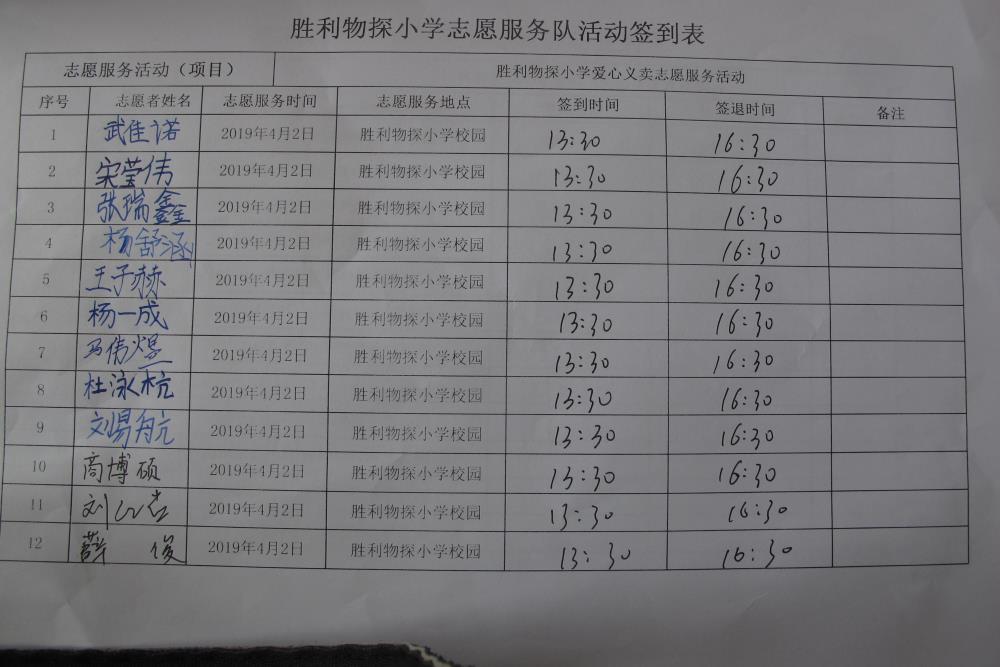 胜利物探小学志愿服务队活动签到表
志愿服务活动（项目） 胜利物探小学爱心义卖志愿服务活动
序号 志愿者姓名 志愿服务时间 志愿服务地点 签到时间 签退时间 备注
1 武佳诺 2019年4月2日 胜利物探小学校园 13:30 16:30
2 宋莹伟 2019年4月2日 胜利物探小学校园 13:30 16:30
3 张瑞鑫 2019年4月2日 胜利物探小学校园 13:30 16:30
4 杨舒涵 2019年4月2日 胜利物探小学校园 13:30 16:30
5 王子赫 2019年4月2日 胜利物探小学校园 13:30 16:30
6 杨一成 2019年4月2日 胜利物探小学校园 13:30 16:30
7 马伟煜 2019年4月2日 胜利物探小学校园 13:30 16:30
8 杜泳杭 2019年4月2日 胜利物探小学校园 13:30 16:30
9 刘易航 2019年4月2日 胜利物探小学校园 13:30 16:30
10 商博硕 2019年4月2日 胜利物探小学校园 13:30 16:30
11 刘 2019年4月2日 胜利物探小学校园 13:30 16:30
12 薛俊 2019年4月2日 胜利物探小学校园 13:30 16:30